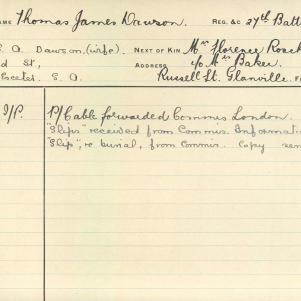 NAME Thomas James Dawson. REG. &c 27th Batt
E. A. Dawson. (wife). NEXT OF KIN Mrs Florence
d St, ADDRESS c/o Mrs Baker.
S. A. Russell St. Glanville.
I/P. P/Cable forwarded Commis London.
"Slips" received from Commis. Informati
"Slip", re burial, from Commis. Copy sen